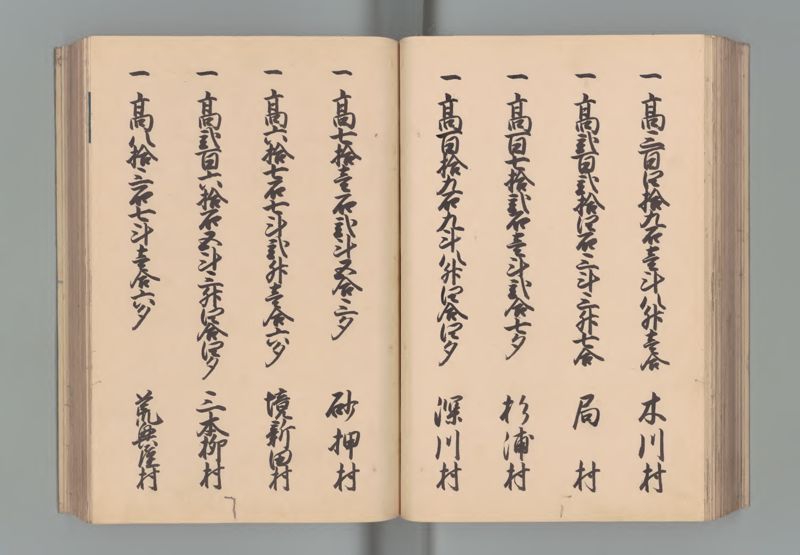 一 高三百四拾九石壱斗八升壱合 木川村
一 高弐百弐拾四石三斗三升七合 局村
一 高百七拾弐石壱斗弐合七夕 杉浦村
一 高百拾九石九斗八升四合四夕 深川村
一 高七拾壱石弐斗五合三夕 砂押村
一 高六拾七石七斗弐升壱合六夕 境新田村
一 高弐百六拾石五斗三升四合四夕 三本柳村
一 高八拾三石七斗壱合六夕 荒興屋村